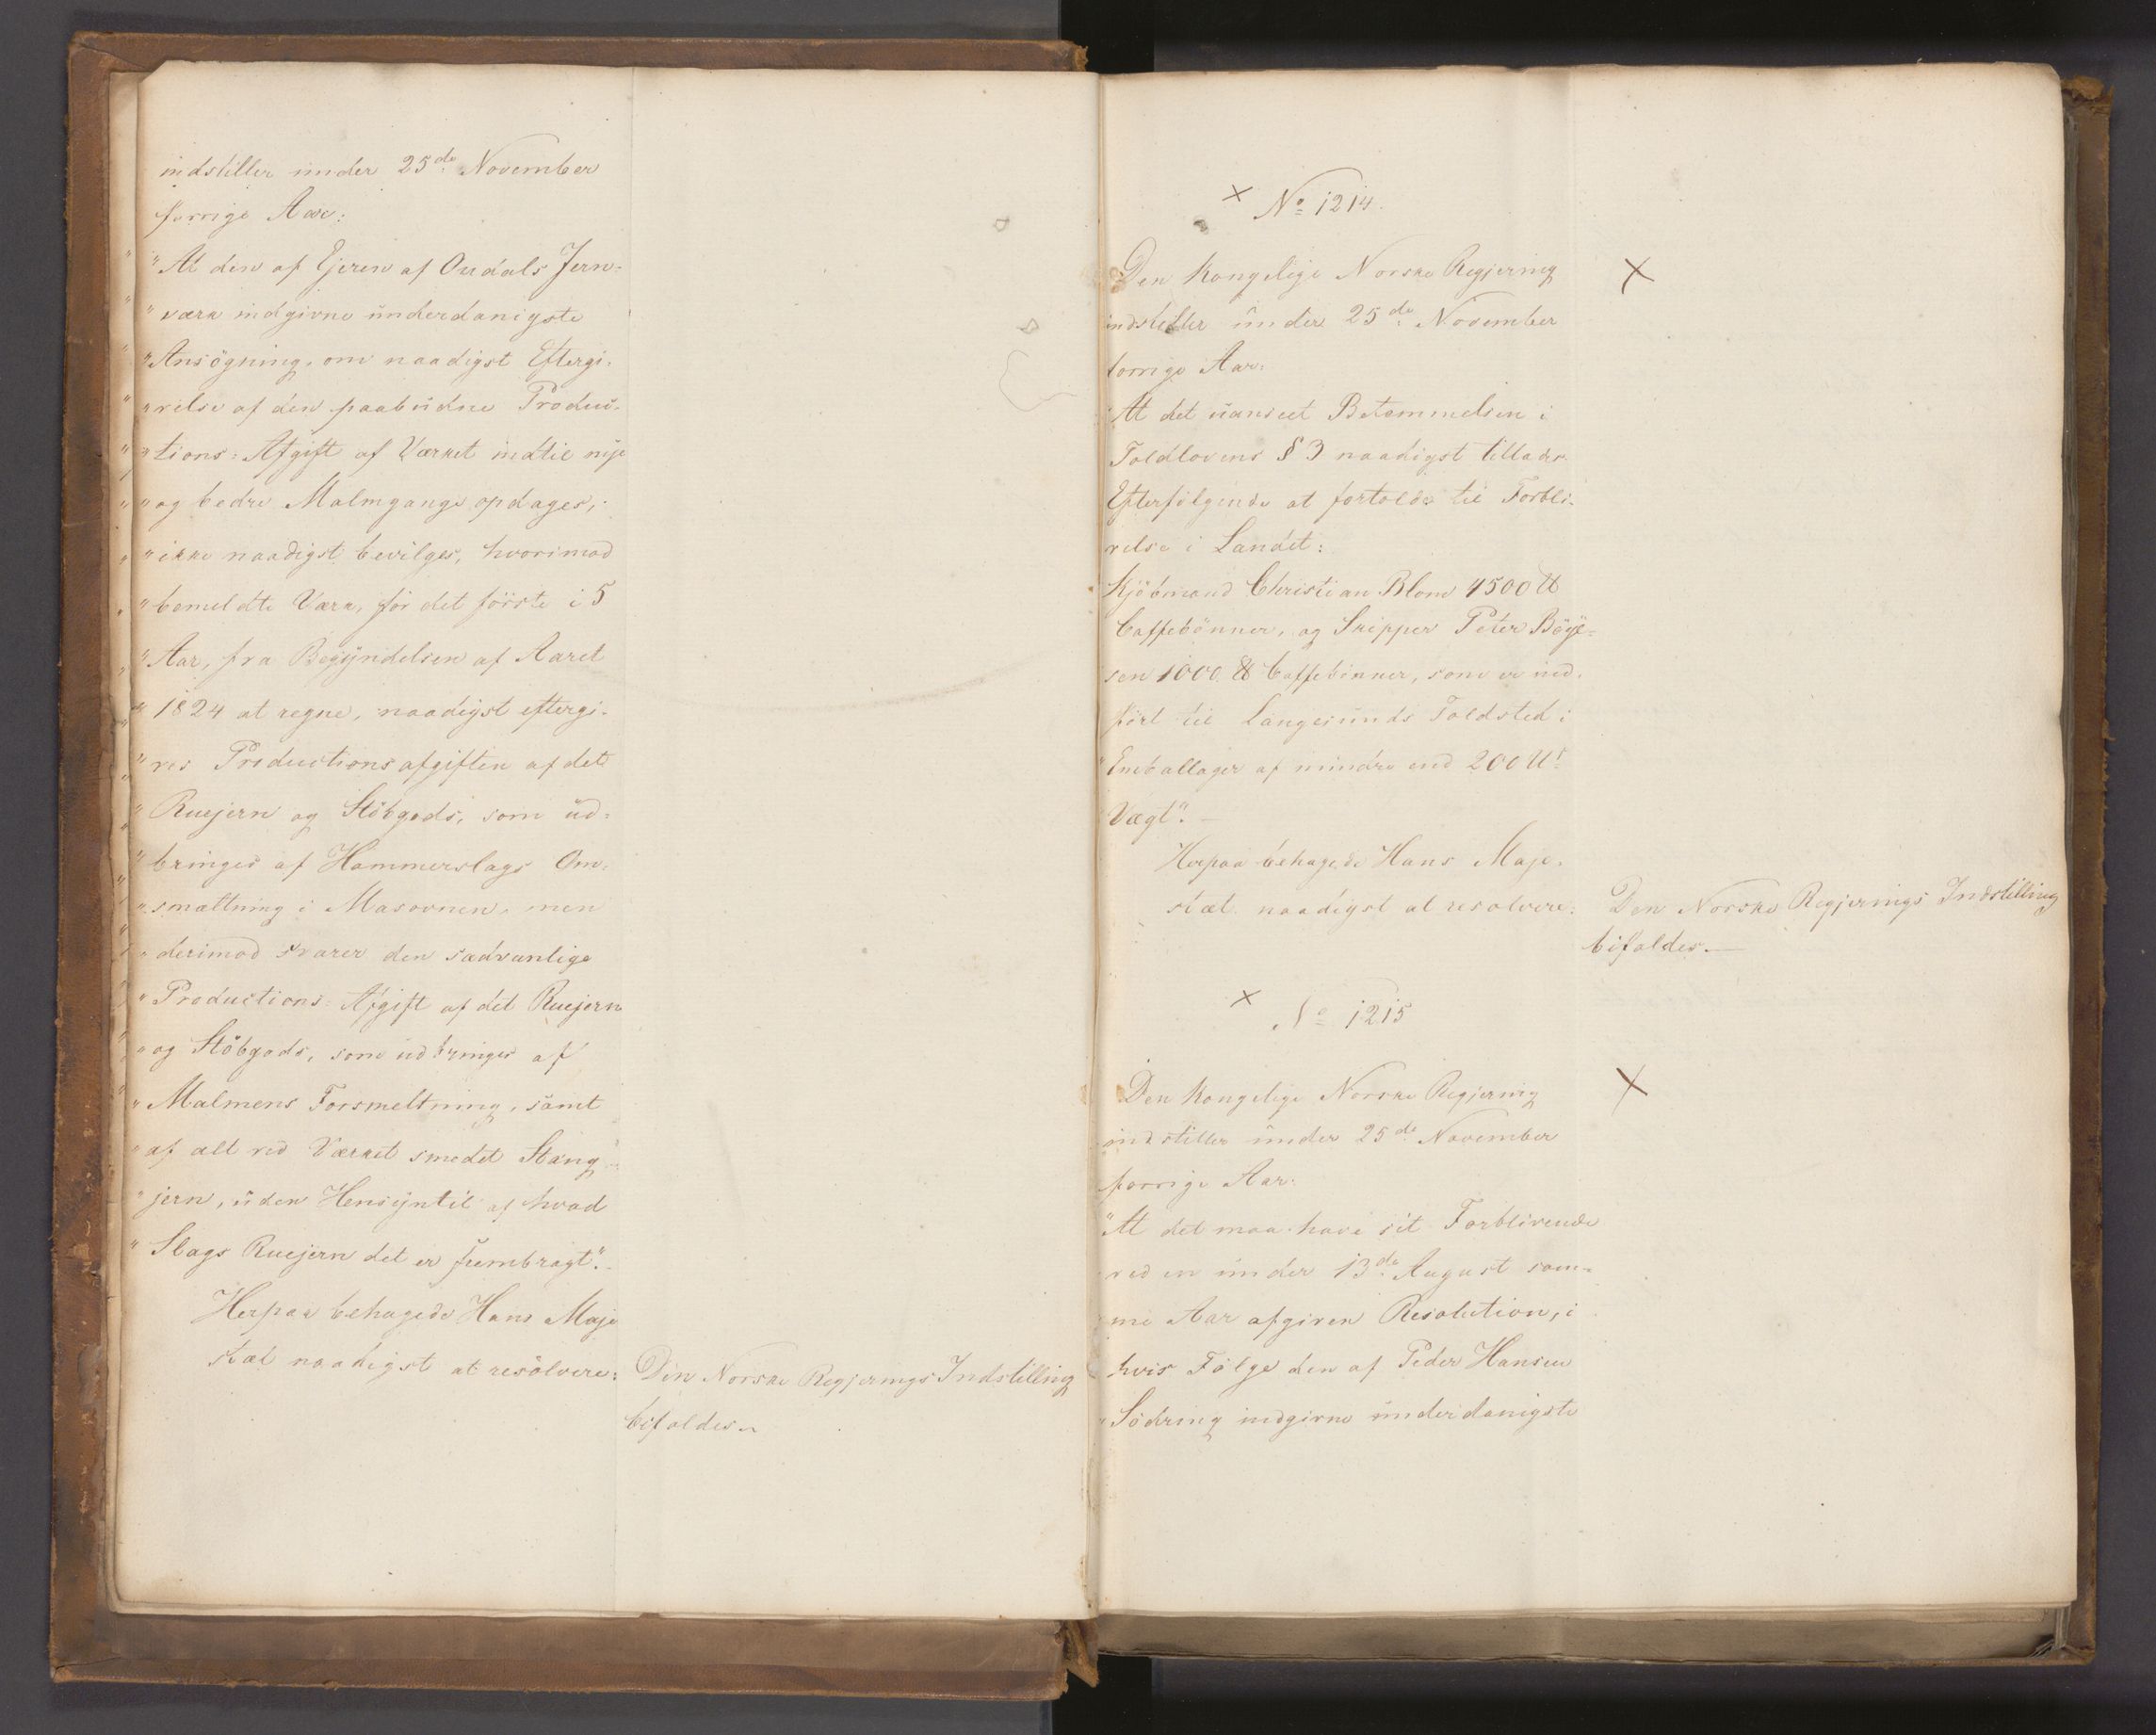 indstiller under 25de November
forrige Aar:
"At den af Ejeren af Oudals Jern-
"værk indgivne underdanigste
"Ansögning, om naadigst Eftergi-
"velse af den paabudne Produc-
"tions-Afgift af Værket indtil nye
"og bedre Malmgange opdages,
"ikke naadigst bevilges, hvorimod
"bemeldte Værk, for det förste i 5
"Aar, fra Begyndelsen af Aaret
"1824 at regne, naadigst eftergi-
"ves Productionsafgiften af det
"Ruejern og Stöbgods, som ud-
"bringes af Hammerslags Om-
"smæltning i Masovnen, men
"derimod svarer den sædvanlige
"Productions-Afgift af det Ruejern
"og Stöbgods, som udbringes af
"Malmens Forsmeltning, samt
"af alt ved Værket smedet Stang-
"jern, uden Hensyn til af hvad
"Slags Ruejern det er frembragt".
Herpaa behagede Hans Maje
stæt naadigst at resolvere:
Den Norske Regjerings Indstilling
bifaldes.
× No 1214.
Den Kongelige Norske Regjering
×
indstiller under 25de November
forrige Aar:
"At det uanseet Bestemmelsen i
Toldlovens § 3 naadigst tillades
Efterfölgende at fortolde til Forbli-
velse i Landet:
Kjöbmand Christian Blom 4500 ℔
Caffebönner, og Skipper Peter Böye-
sen 1000 ℔ Caffebönner, som er ind-
fört til Langesunds Toldsted i
"Emballager af mindre end 200 ℔s
Vægt". —
Herpaa behagede Hans Maje-
stæt naadigst at resolvere:
Den Norske Regjerings Indstilling
bifaldes. —
× No 1215
Den Kongelige Norske Regjering
×
indstiller under 25de November
forrige Aar:
"At det maa have sit Forblivende
ved en under 13de August sam-
me Aar afgiven Resolution, i
hvis Fölge den af Peder Hansen
"Södring indgivne underdanigste